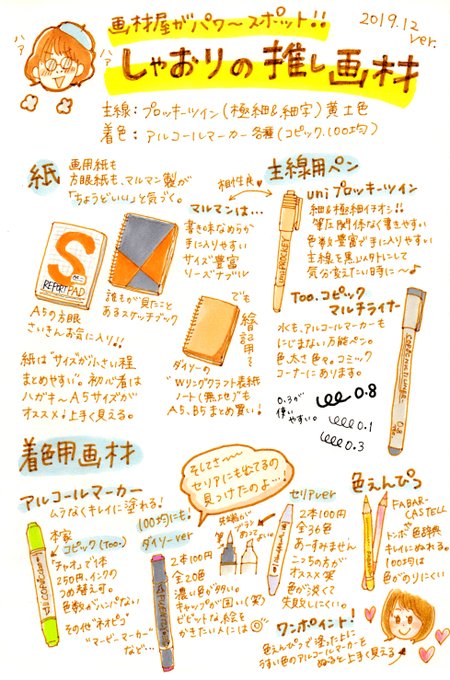 画材屋がパワ〜スポット!!
2019.12
ver.
しゃおりの推し画材
ハァ
ハァ
主線:プロッキーツイン(極細&細字)黄土色
着色:アルコールマーカー各種(コピック、100均)
紙
画用紙も
方眼紙も、マルマン製が
「ちょうどいい」と気づく。
相性良
S
REPORT PAD
A5の方眼
さいきんお気に入り!!
誰もが見たこと
あるスケッチブック
マルマンは…
書き味なめらか
手に入りやすい
サイズ豊富
リーズナブル
でも
絵日記用で
ダイソーの
Wリングクラフト表紙
ノート(無地)も
A5、B5まとめ買い!
紙は"サイズが小さい程
まとめやすい"。初心者は
ハガキ〜A5サイズが
オススメ!上手く見える。
主線用ペン
uni プロッキーツイン
細&極細イチオシ!!
筆圧関係なく書きやすい
色数も豊富で手に入りやすい
主線を黒以外にして
気分変えたい時に〜♪
PROCKEY
Too.コピック
マルチライナー
水も、アルコールマーカーも
にじまない万能ペン。
色、太さ色々。コミック
コーナーにあります。
COPIC MULTILINER
0.8
0.3が
使い
やすい。
0.8
0.1
0.3
着色用画材
アルコールマーカー
ムラなくキレイに塗れる!
本家
コピック(Too.)
「チャオ」で1本
250円、インクの
つめ替え可。
色数がハンパない
その他"ネオピコ"
"マービーマーカー"
など…
100均にも!
ダイソーver
2本100円
全20色
濃い色が多い。
キャップが固い(笑)
ビビットな絵を
かきたい人には◎
そしてさ〜
セリアにも出てるの
見つけたのよ…!
セリアver
2本100円
全36色
あーすみません
こっちの方が
オススメ 笑
色が淡くて
失敗しにくい。
色えんぴつ
FABAR-
CASTELL
トンボ 色辞典
キレイにぬれる。
100均は
色がのりにくい
ワンポイント!
色えんぴつで塗った上に
うすい色のアルコールマーカーを
ぬると上手く見える